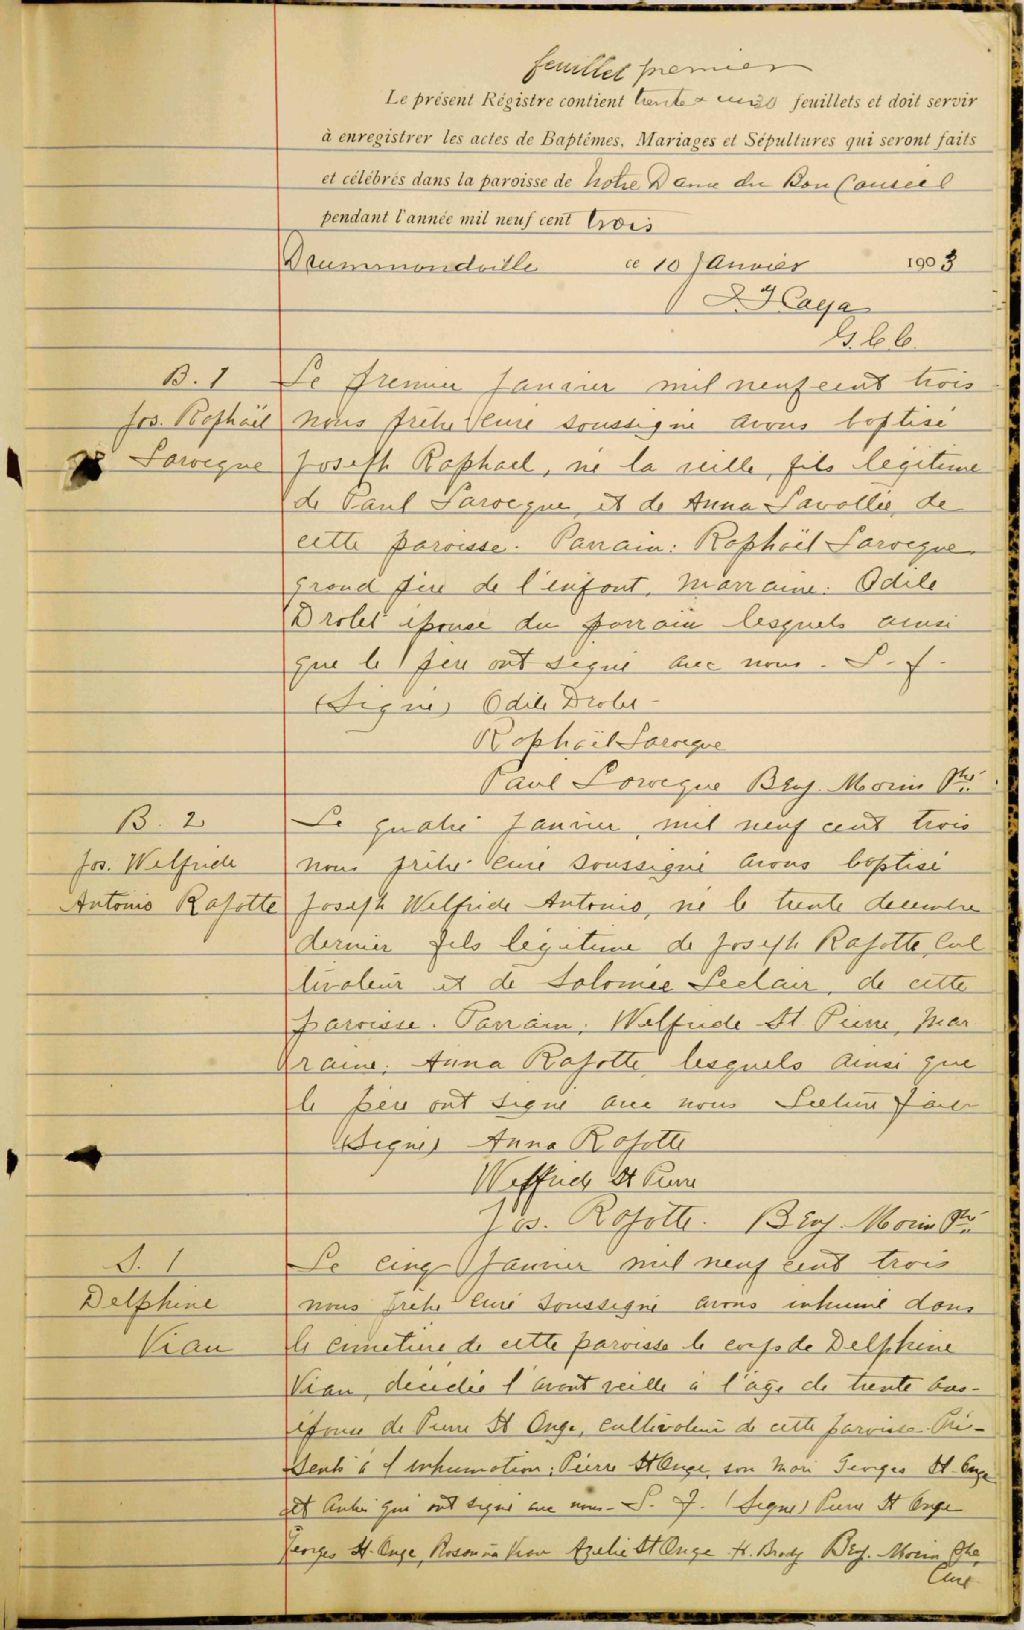 feuillet premier
Le présent Régistre contient trente & un feuillets et doit servir
à enregistrer les actes de Baptêmes, Mariages et Sépultures qui seront faits
et célébrés dans la paroisse de Notre Dame du Bon Conseil
pendant l'année mil neuf cent trois
Drummondville ce 10 Janvier 1903
J. J. Caya
G.C.C.
B. 1
Jos. Raphaël
Larocque
Le premier Janvier mil neuf cent trois
nous prêtre curé soussigné avons baptisé
Joseph Raphael, né la veille, fils légitime
de Paul Larocque, et de Anna Lavallée, de
cette paroisse. Parrain: Raphaël Larocque
grand père de l'enfant, marraine: Odile
Drolet épouse du parrain lesquels ainsi
que le père ont signé avec nous. L. f.
(Signé) Odile Drolet
Raphaël Larocque
Paul Larocque Benj. Morin Ptre
B. 2
Jos. Welfride
Antonio Rajotte
Le quatre Janvier, mil neuf cent trois
nous prêtre curé soussigné avons baptisé
Joseph Welfride Antonio, né le trente decembre
dernier fils légitime de Joseph Rajotte, cul
tivateur et de Salomée Leclair, de cette
paroisse. Parrain; Welfride St Pierre, mar
raine; Anna Rajotte, lesquels ainsi que
le père ont signé avec nous Lecture faite
(Signé) Anna Rajotte
Welfride St Pierre
Jos. Rajotte. Benj. Morin Ptre
S. 1
Delphine
Vian
Le cinq Janvier mil neuf cent trois
nous prêtre curé soussigné avons inhumé dans
le cimetière de cette paroisse le corps de Delphine
Vian, décédée l'avant veille à l'âge de trente ans
épouse de Pierre St Onge, cultivateur de cette paroisse. Pré-
sents à l'inhumation; Pierre St Onge, son mari Georges St. Onge
et autres qui ont signé avec nous. L. F. (Signé) Pierre St Onge
Georges St. Onge, Vian Azelie St Onge H. Brady Benj. Morin Ptre
Curé